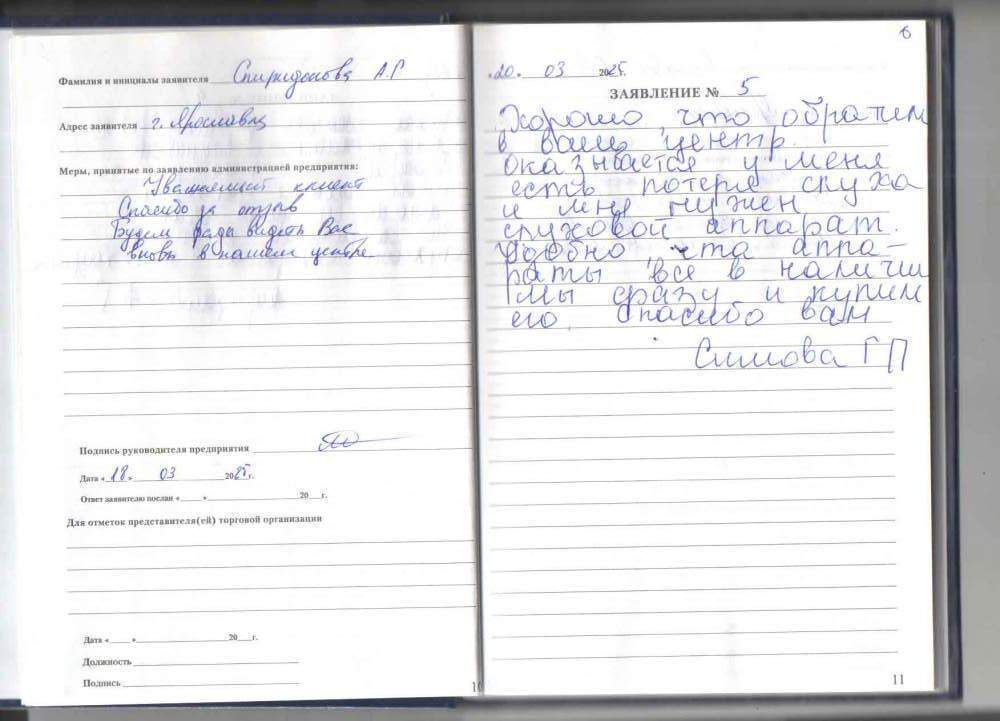 Фамилия и инициалы заявителя Спиридонова А.Г
Адрес заявителя г. Ярославль
Меры, принятые по заявлению администрацией предприятия:
Уважаемый клиент
Спасибо за отзыв
Будем рады видеть Вас
вновь в нашем центре.
Подпись руководителя предприятия
Дата «18» 03 2025г.
Ответ заявителю послан «___» ___ 20__г.
Для отметок представителя(ей) торговой организации
Дата «___» ___ 20__г.
Должность
Подпись
10
6
«20» 03 2025г.
ЗАЯВЛЕНИЕ № 5
Хорошо, что обратим
в ваш центр.
Оказывается у меня
есть потеря слуха
и мне нужен
слуховой аппарат.
Удобно, что аппа-
раты все в наличии
Мы сразу и купим
его. Спасибо вам
Симова Г П
11